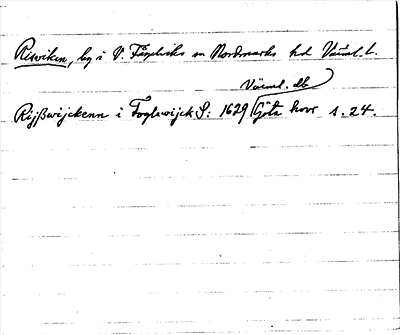 Risviken, by i V. Fågelviks sn Nordmarks hd Värml. l.
Värml. db
Rijßwijckenn i Foglewijck S: 1629 Göta hovr s. 24.